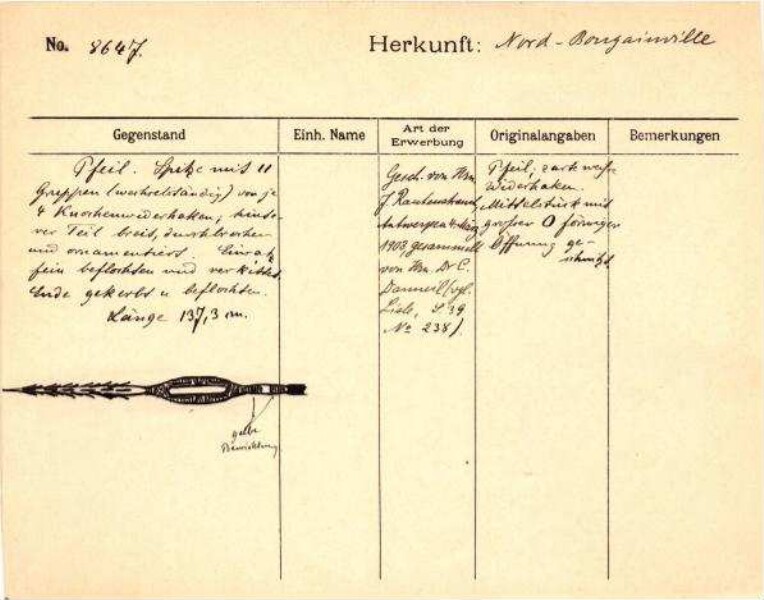 No. 8647.
Herkunft: Nord-Bougainville
Gegenstand
Einh. Name
Art der
Erwerbung
Originalangaben
Bemerkungen
Pfeil. Spitze mit 11
Gruppen (wechselständig) von je
4 Knochenwiderhaken; hinte-
rer Teil breit, durchbrochen
und ornamentiert. Einsatz
fein beflochten und verkittet.
Ende gekerbt u beflochten.
Länge 137,3 cm.
gelbe
Bewicklung
Gesch. von Hrn.
J. Rautenstrauch,
Antwerpen 4. März
1903, gesammelt
von Hrn. Dr C.
Danneil (vgl.
Liste, S. 39
No 238).
Pfeil,
Widerhaken.
Mittelstück mit
grosser O förmiger
Öffnung ge-
schnitzt